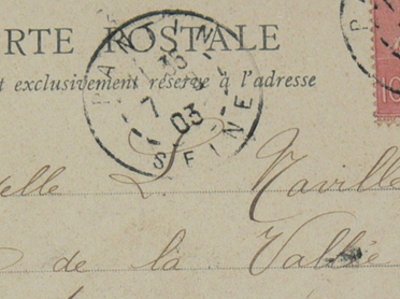 RTE POSTALE
t exclusivement réservé à l'adresse
PANTIN
7 03
SEINE
elle L. Naville
de la Vallée
10